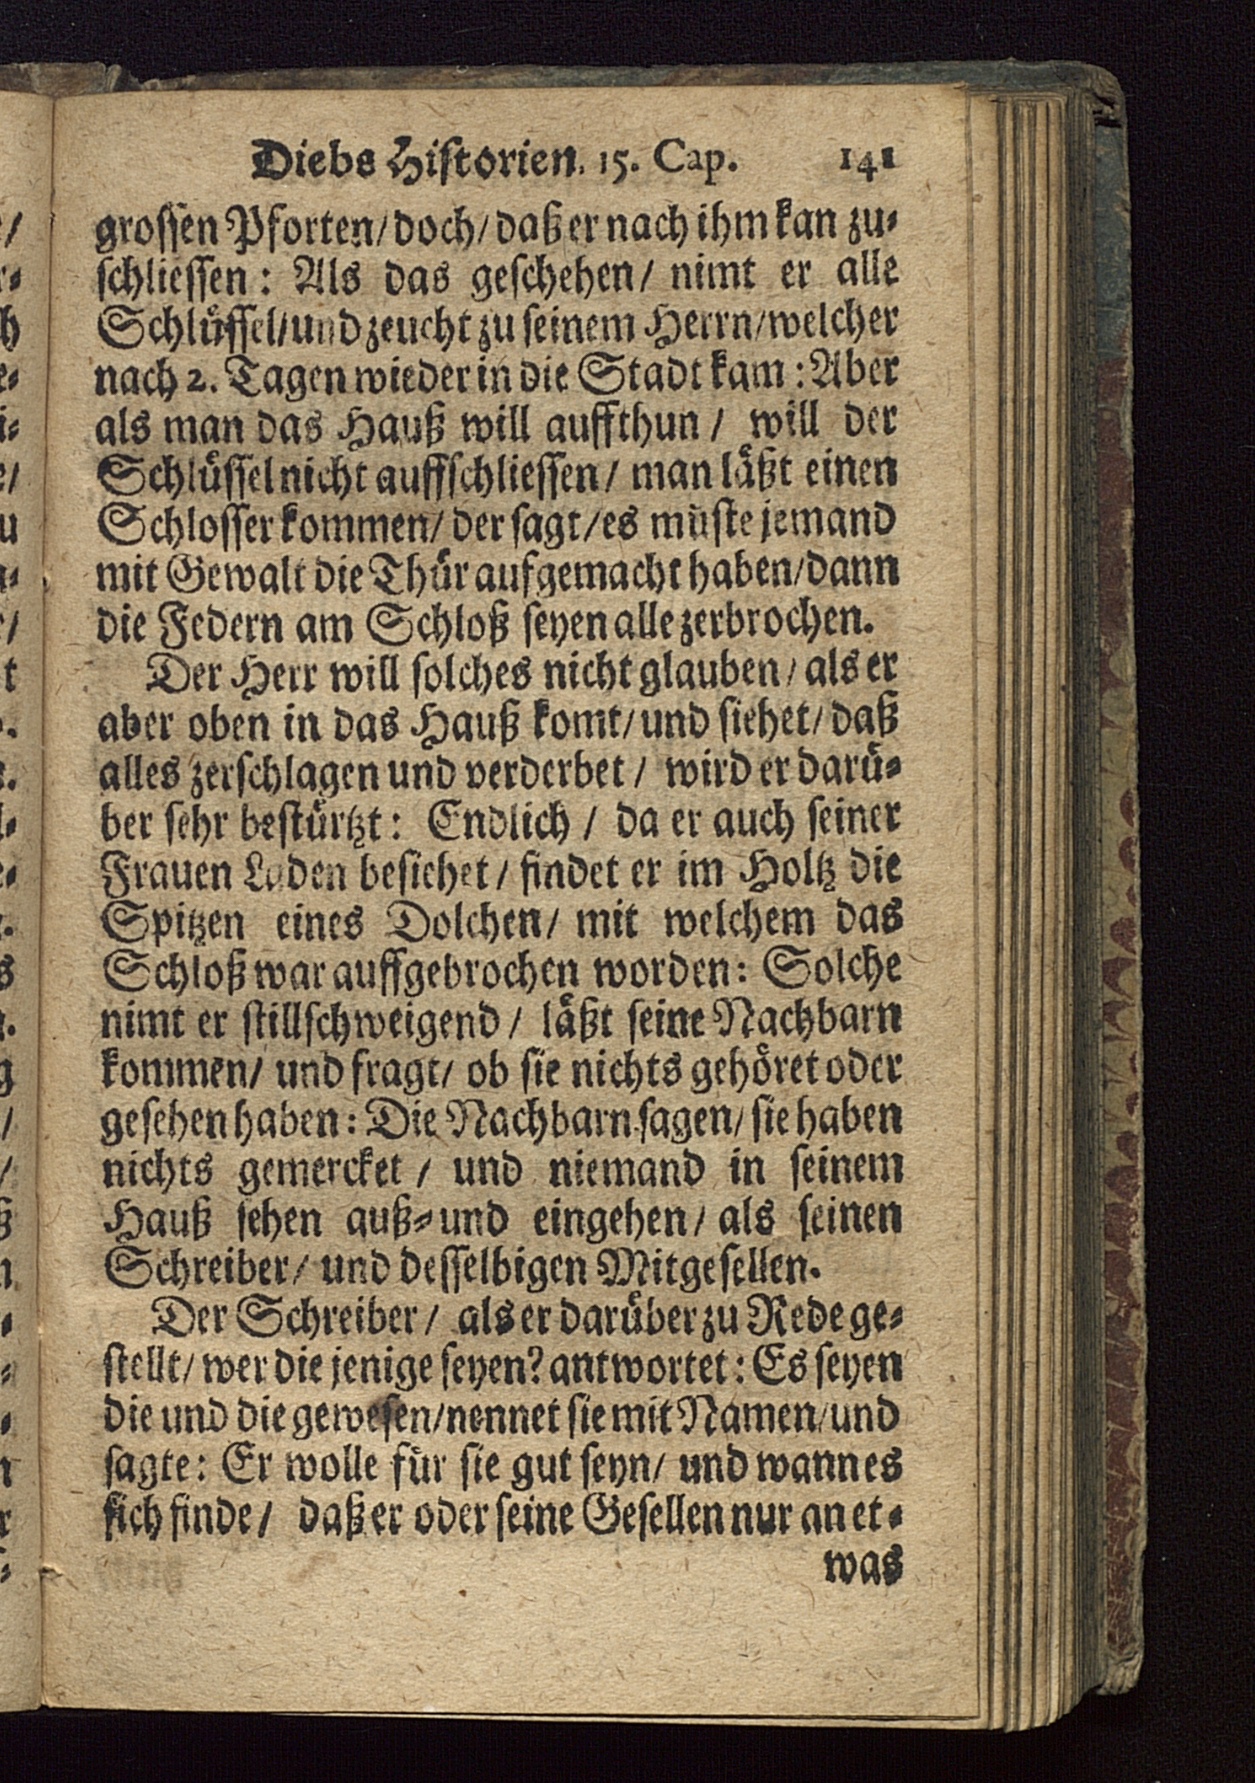 Diebs Historien. 15. Cap. 141
grossen Pforten/doch/daß er nach ihm kan zu-
schliessen: Als das geschehen/ nimt er alle
Schlüssel/und zeucht zu seinem Herrn/welcher
nach 2. Tagen wieder in die Stadt kam: Aber
als man das Hauß will auffthun/ will der
Schlüssel nicht auffschliessen/ man läßt einen
Schlosser kommen/ der sagt/es müste jemand
mit Gewalt die Thür aufgemacht haben/dann
die Federn am Schloß seyen alle zerbrochen.
Der Herr will solches nicht glauben/ als er
aber oben in das Hauß komt/und siehet/daß
alles zerschlagen und verderbet/ wird er darü-
ber sehr bestürtzt: Endlich/ da er auch seiner
Frauen Laden besiehet/ findet er im Holtz die
Spitzen eines Dolchen/ mit welchem das
Schloß war auffgebrochen worden: Solche
nimt er stillschweigend/ läßt seine Nachbarn
kommen/ und fragt/ ob sie nichts gehöret oder
gesehen haben: Die Nachbarn sagen/ sie haben
nichts gemercket/ und niemand in seinem
Hauß sehen auß-und eingehen/ als seinen
Schreiber/ und desselbigen Mitgesellen.
Der Schreiber/ als er darüber zu Rede ge-
stellt/ wer die jenige seyen? antwortet: Es seyen
die und die gewesen/nennet sie mit Namen/und
sagte: Er wolle für sie gut seyn/ und wann es
sich finde/ daß er oder seine Gesellen nur an et-
was